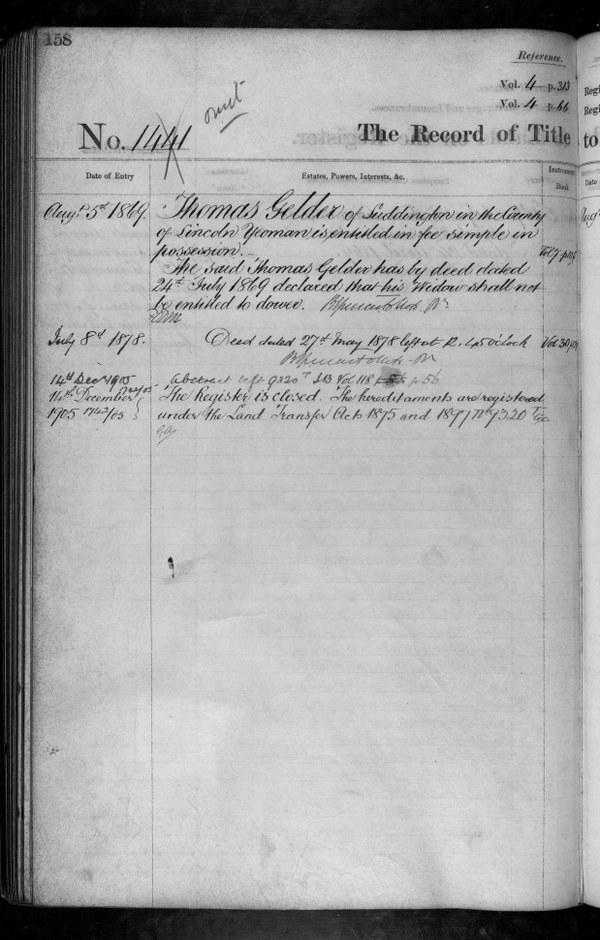 158
Reference.
Vol. 4 p. 313
Vol. 4 p. 66
omit
No. 1441 The Record of Title to
Date of Entry Estates, Powers, Interests, &c. Date
Augt. 5th 1869. Thomas Gelder of Luddington in the County
of Lincoln Yeoman is entitled in fee simple in
possession.
The said Thomas Gelder has by deed dated
24th July 1869 declared that his Widow shall not
be entitled to dower.
July 8th 1878. Deed dated 27th May 1878 left at 12.45 o'clock Vol 30
14th Dec 1905 Abstract left 9320 Vol 118 p 56
14th December The Register is closed. The hereditaments are registered
1905 under the Land Transfer Acts 1875 and 1897 No 9320